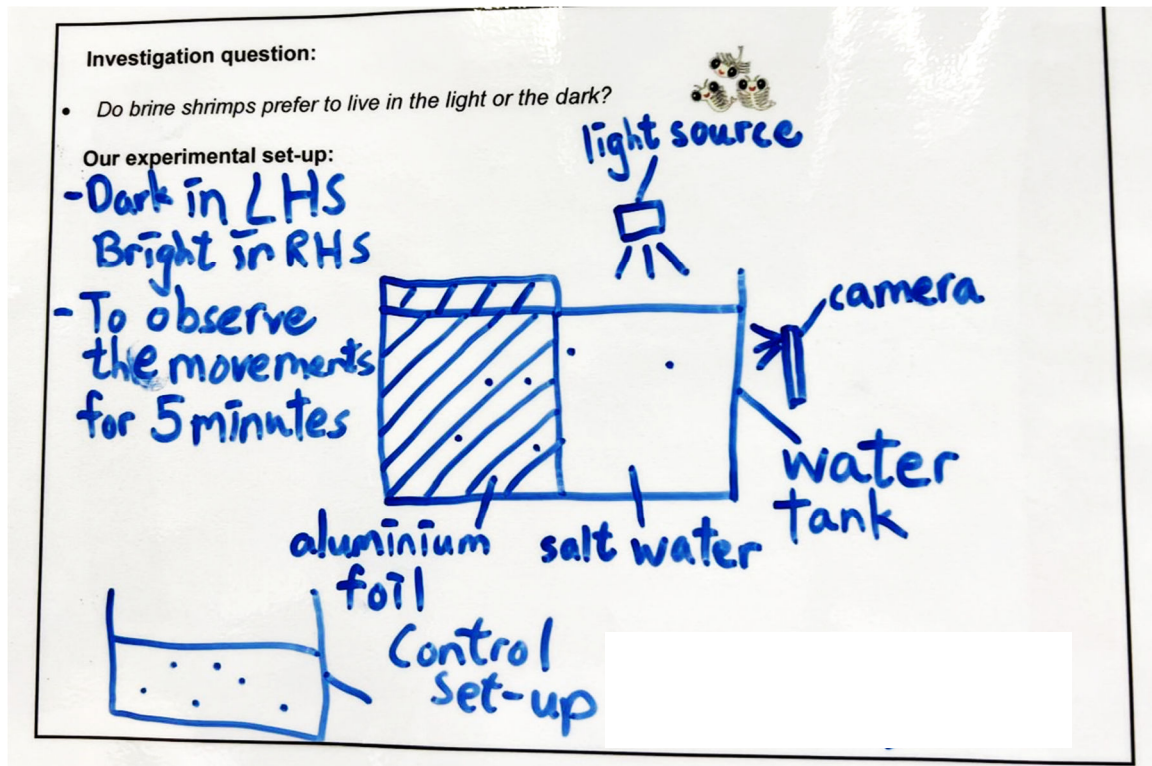 Investigation question:
• Do brine shrimps prefer to live in the light or the dark?
Our experimental set-up:
-Dark in LHS
Bright in RHS
-To observe
the movements
for 5 minutes
light source
camera
water
tank
aluminium
foil
salt water
Control
set-up